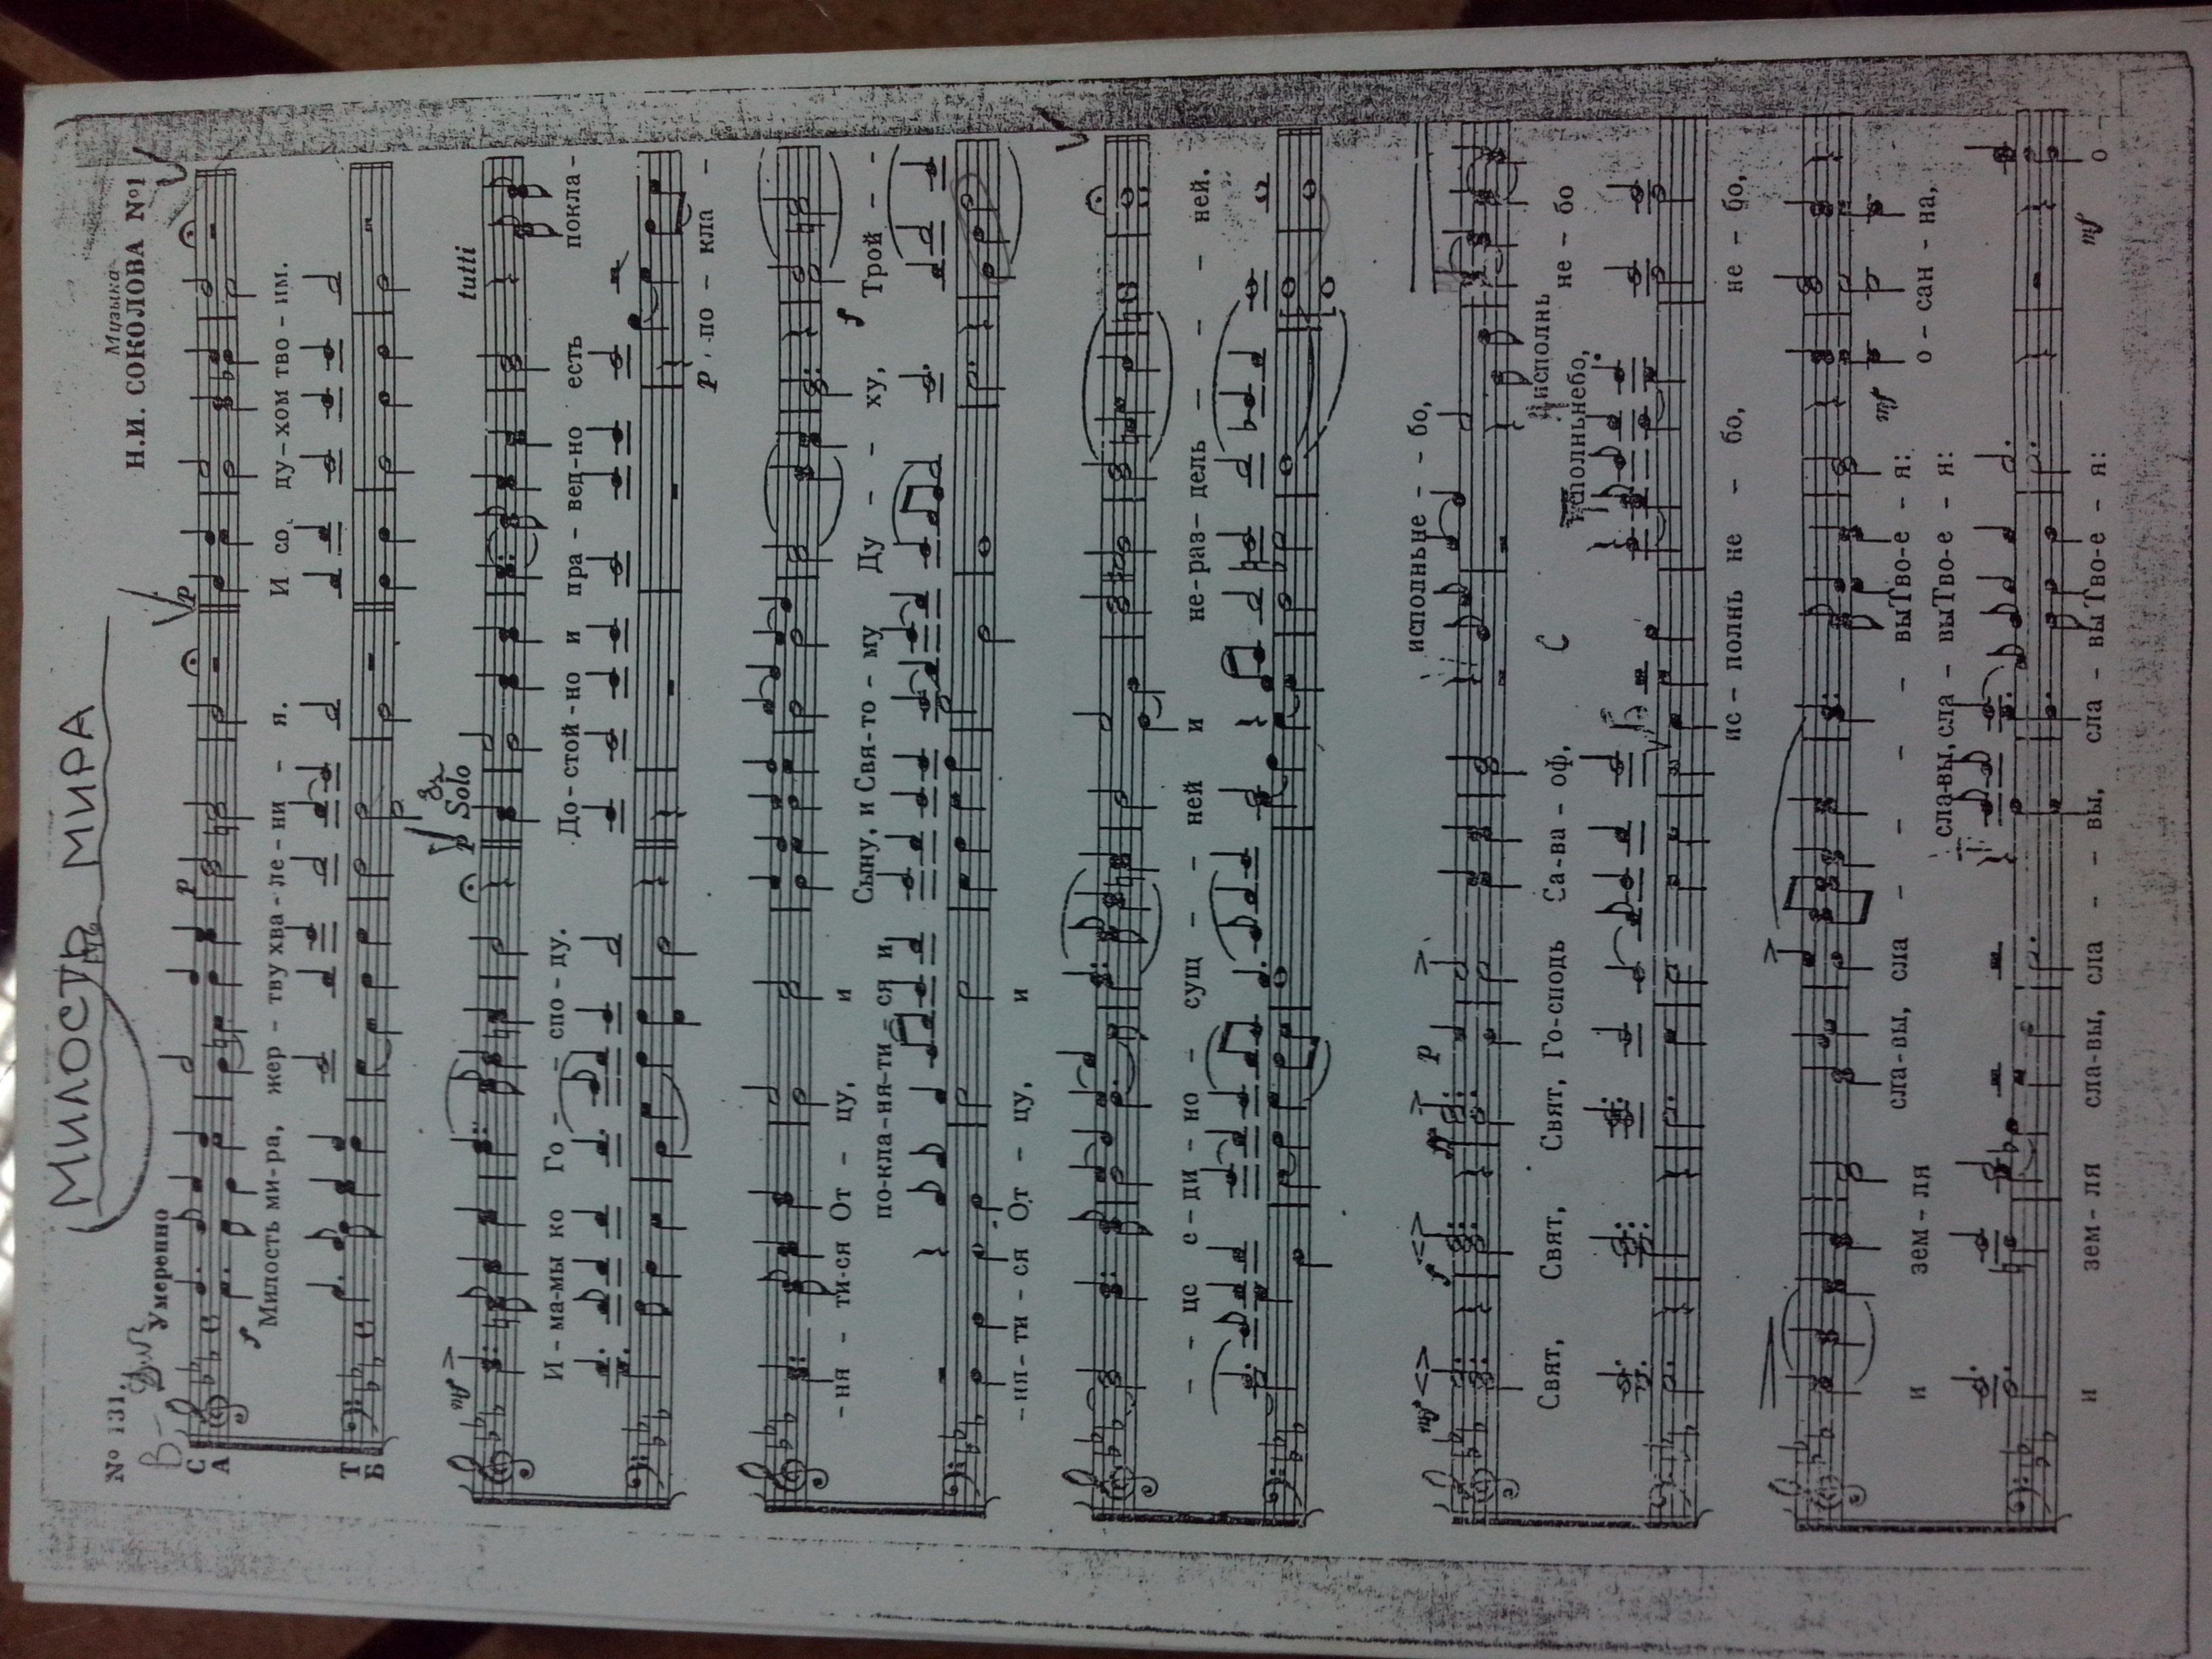 МИЛОСТЬ МИРА
№ 131.
Музыка
Н.И. СОКОЛОВА №1
Умеренно
p
p
С
А
f
Милость ми-ра, жер - тву хва - ле - ни - я. И со ду-хом тво - им.
Т
Б
mf
p Solo
tutti
И - ма-мы ко Го - спо - ду. До-стой-но и пра - вед-но есть покла-
p по - кла -
-ня - ти-ся От - цу, и Сыну, и Свя-то - му Ду - ху, Трой - -
f
по-кла-ня-ти - ся и
-ня-ти - ся От - цу, и
- - це е - ди - но - сущ - ней и не-раз-дель - - - ней.
mf
f
p
исполнь не - - бо,
Свят, Свят, Свят, Го-сподь Са-ва - оф, исполнь не - бо
исполнь небо,
ис - полнь не - бо, не - бо,
и зем - ля сла-вы, сла - - - - вы Тво-е - я: о - сан - на,
mf
сла-вы, сла - вы Тво-е - я:
и зем - ля сла-вы, сла - - вы, сла - вы Тво-е - я: о -
mf